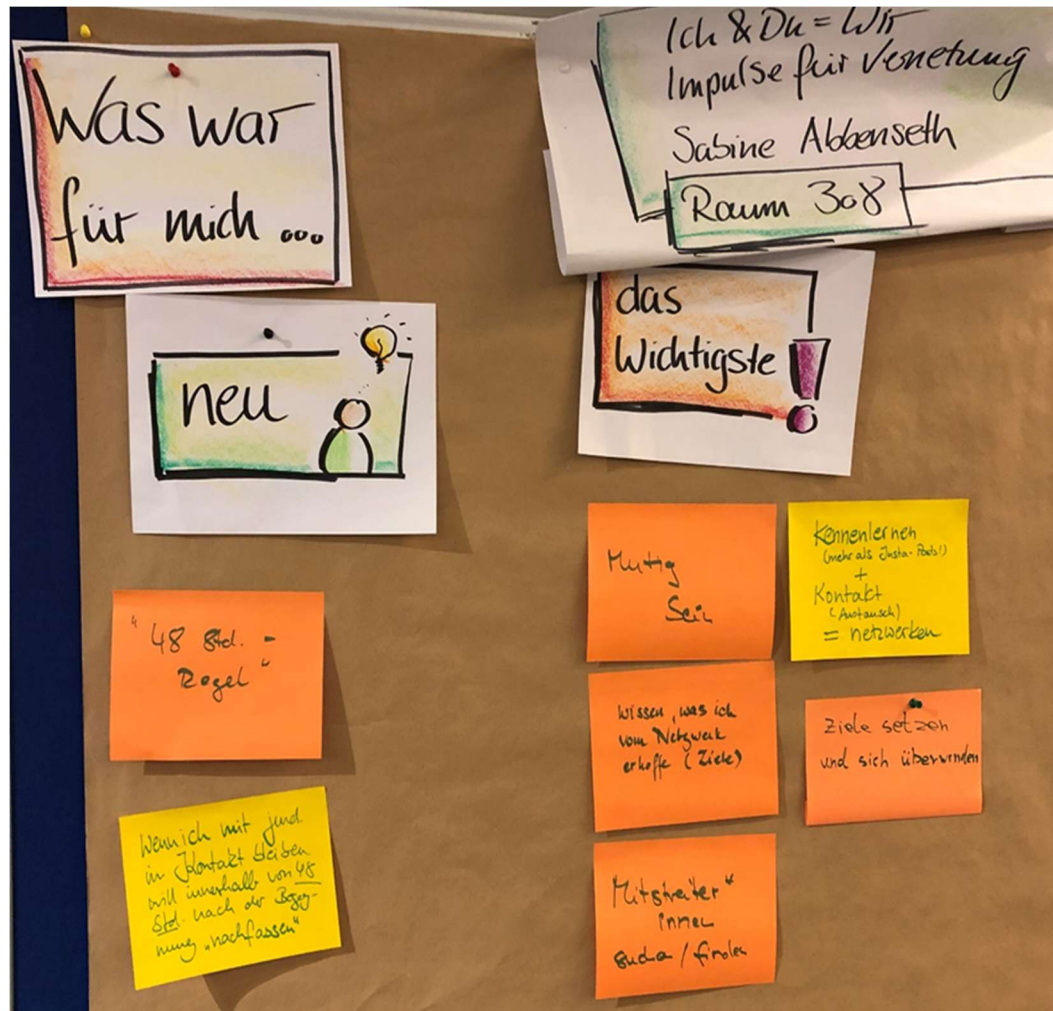 Was war
für mich ...
Ich & Du = Wir
Impulse für Vernetung
Sabine Abbenseth
Raum 308
neu
das
Wichtigste !
"48 Std. -
Regel"
Wenn ich mit jmd.
in Kontakt bleiben
will innerhalb von 48
Std. nach der Begeg-
nung "nachfassen"
Mutig
Sein
Kennenlernen
(mehr als Insta-Posts!)
+
Kontakt
(Austausch)
= netzwerken
Wissen, was ich
vom Netzwerk
erhoffe (Ziele)
Ziele setzen
und sich überwinden
Mitstreiter*
innen
suchen / finden